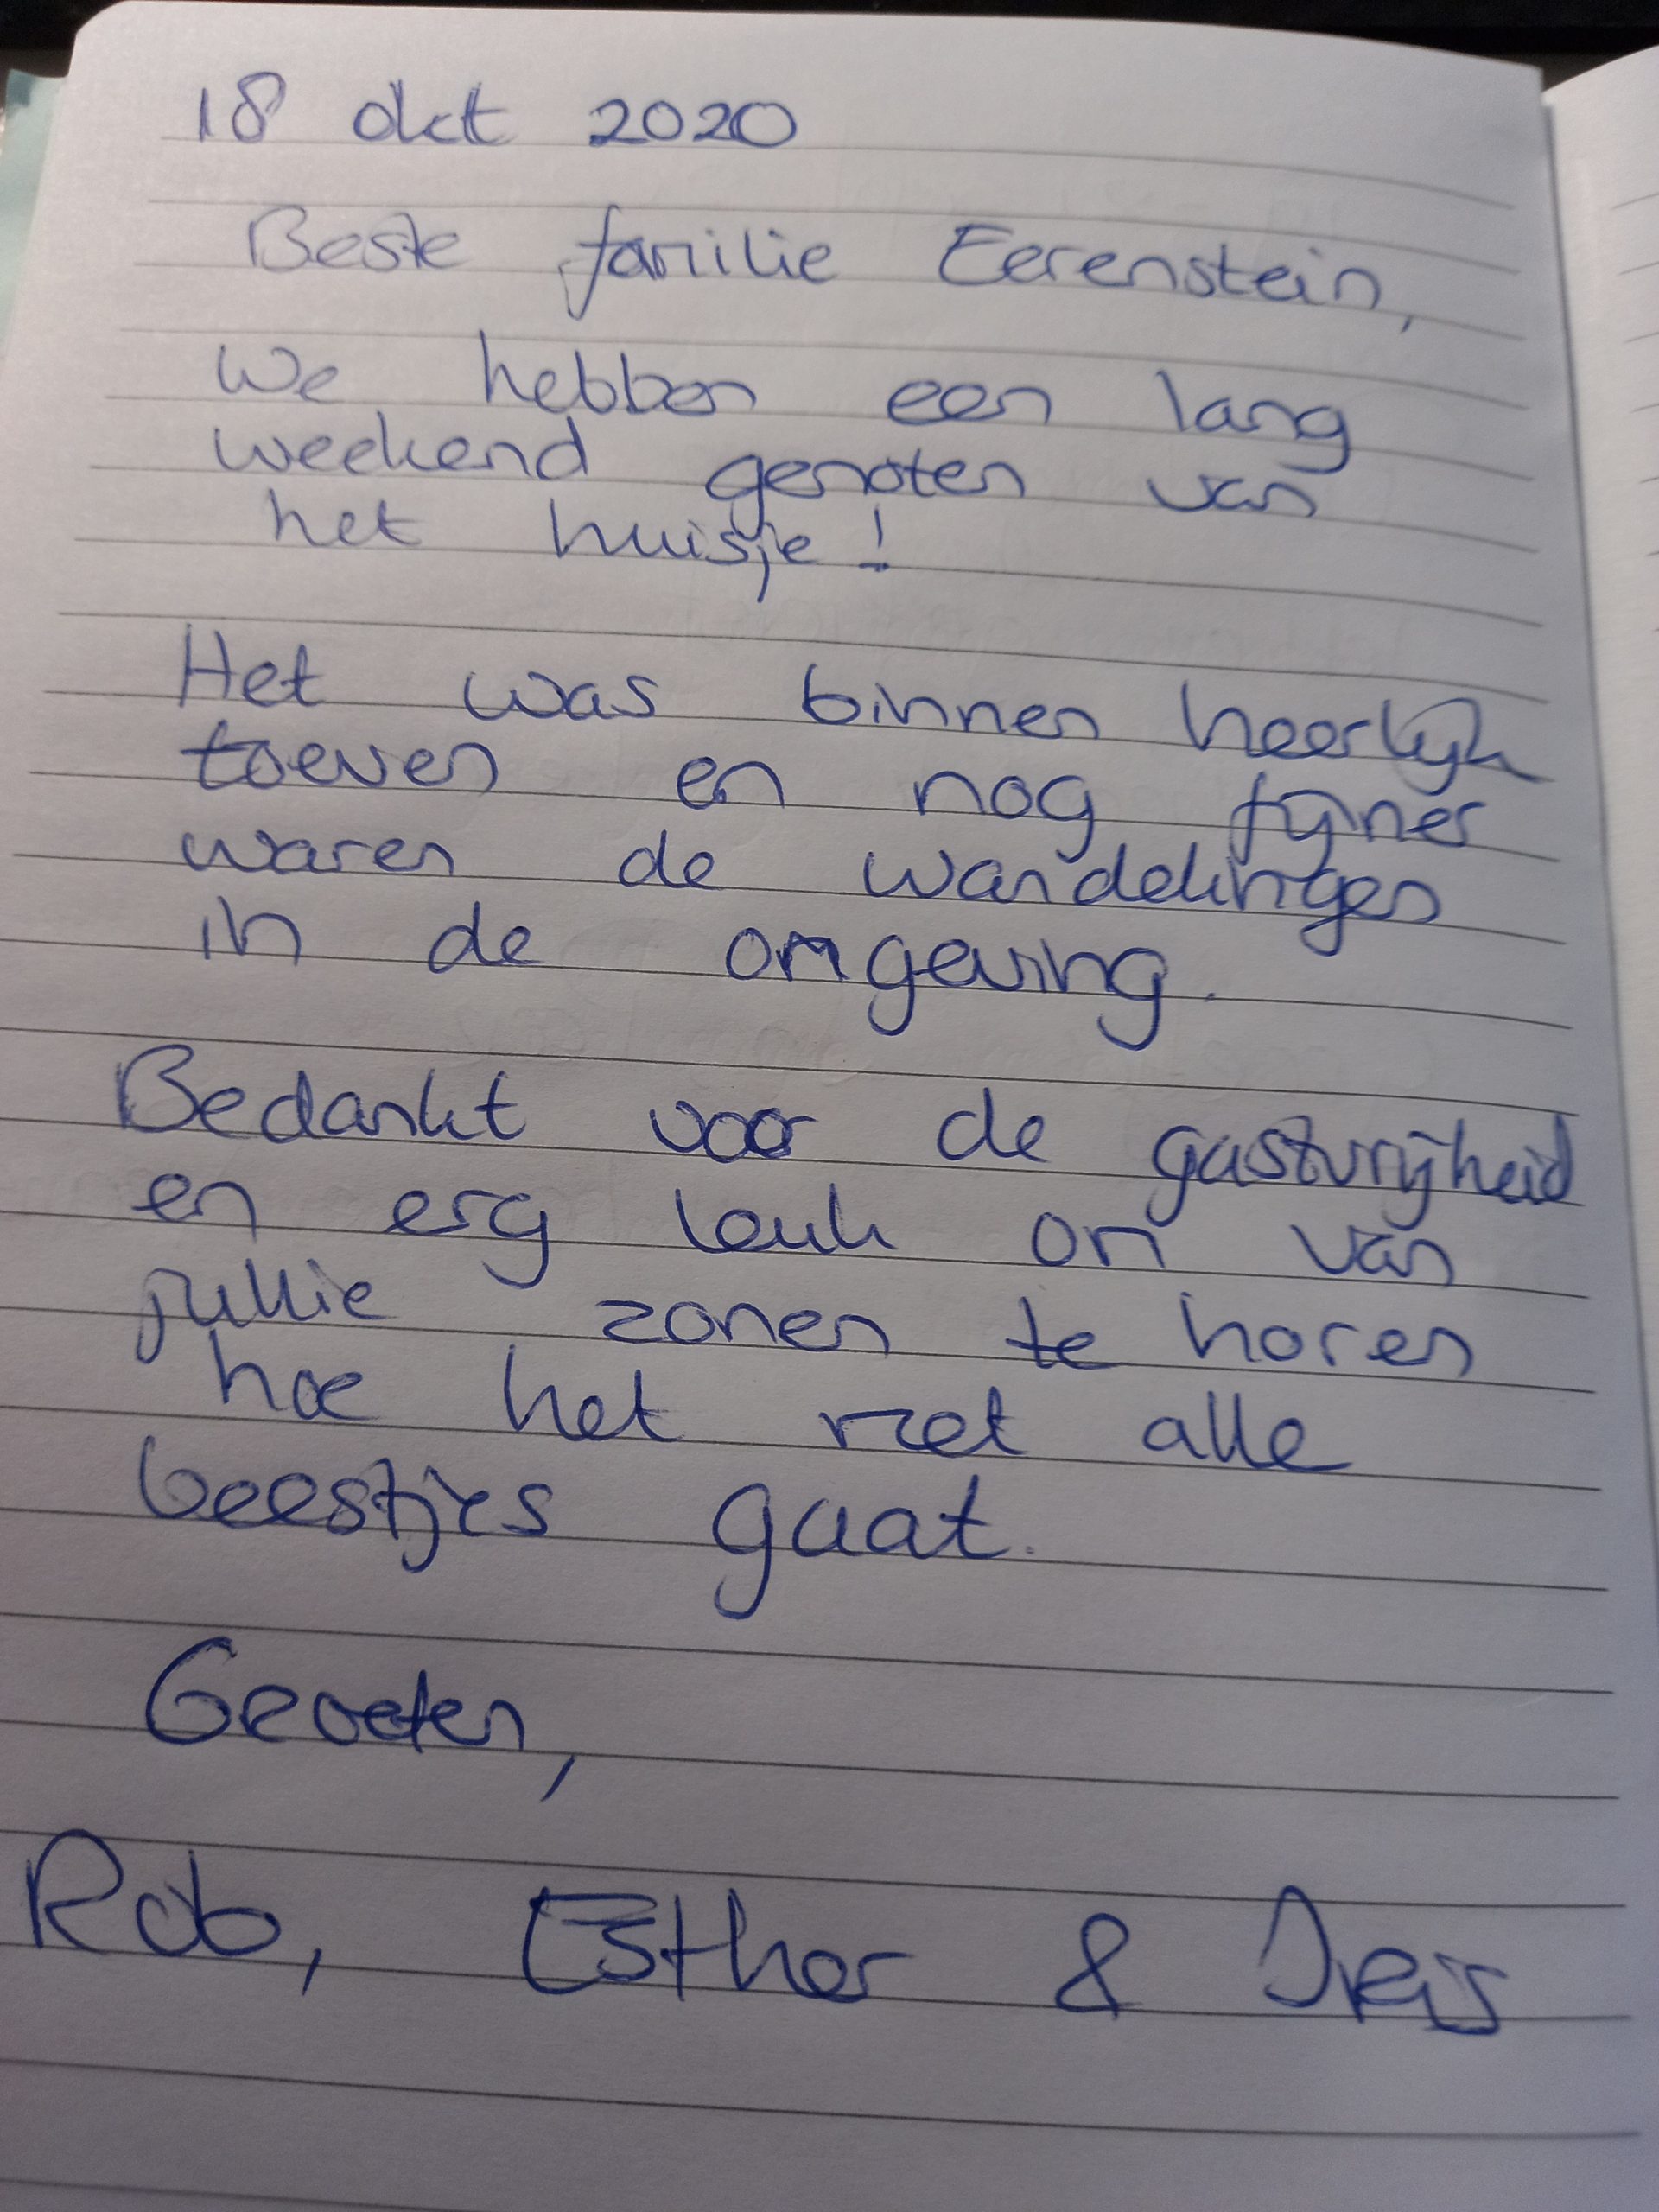 18 okt 2020
Beste familie Eerenstein,
We hebben een lang
weekend genoten van
het huisje!
Het was binnen heerlijk
toeven en nog fijner
waren de wandelingen
in de omgeving.
Bedankt voor de gastvrijheid
en erg leuk om van
jullie zonen te horen
hoe het met alle
beestjes gaat.
Groeten,
Rob, Esther & Iris